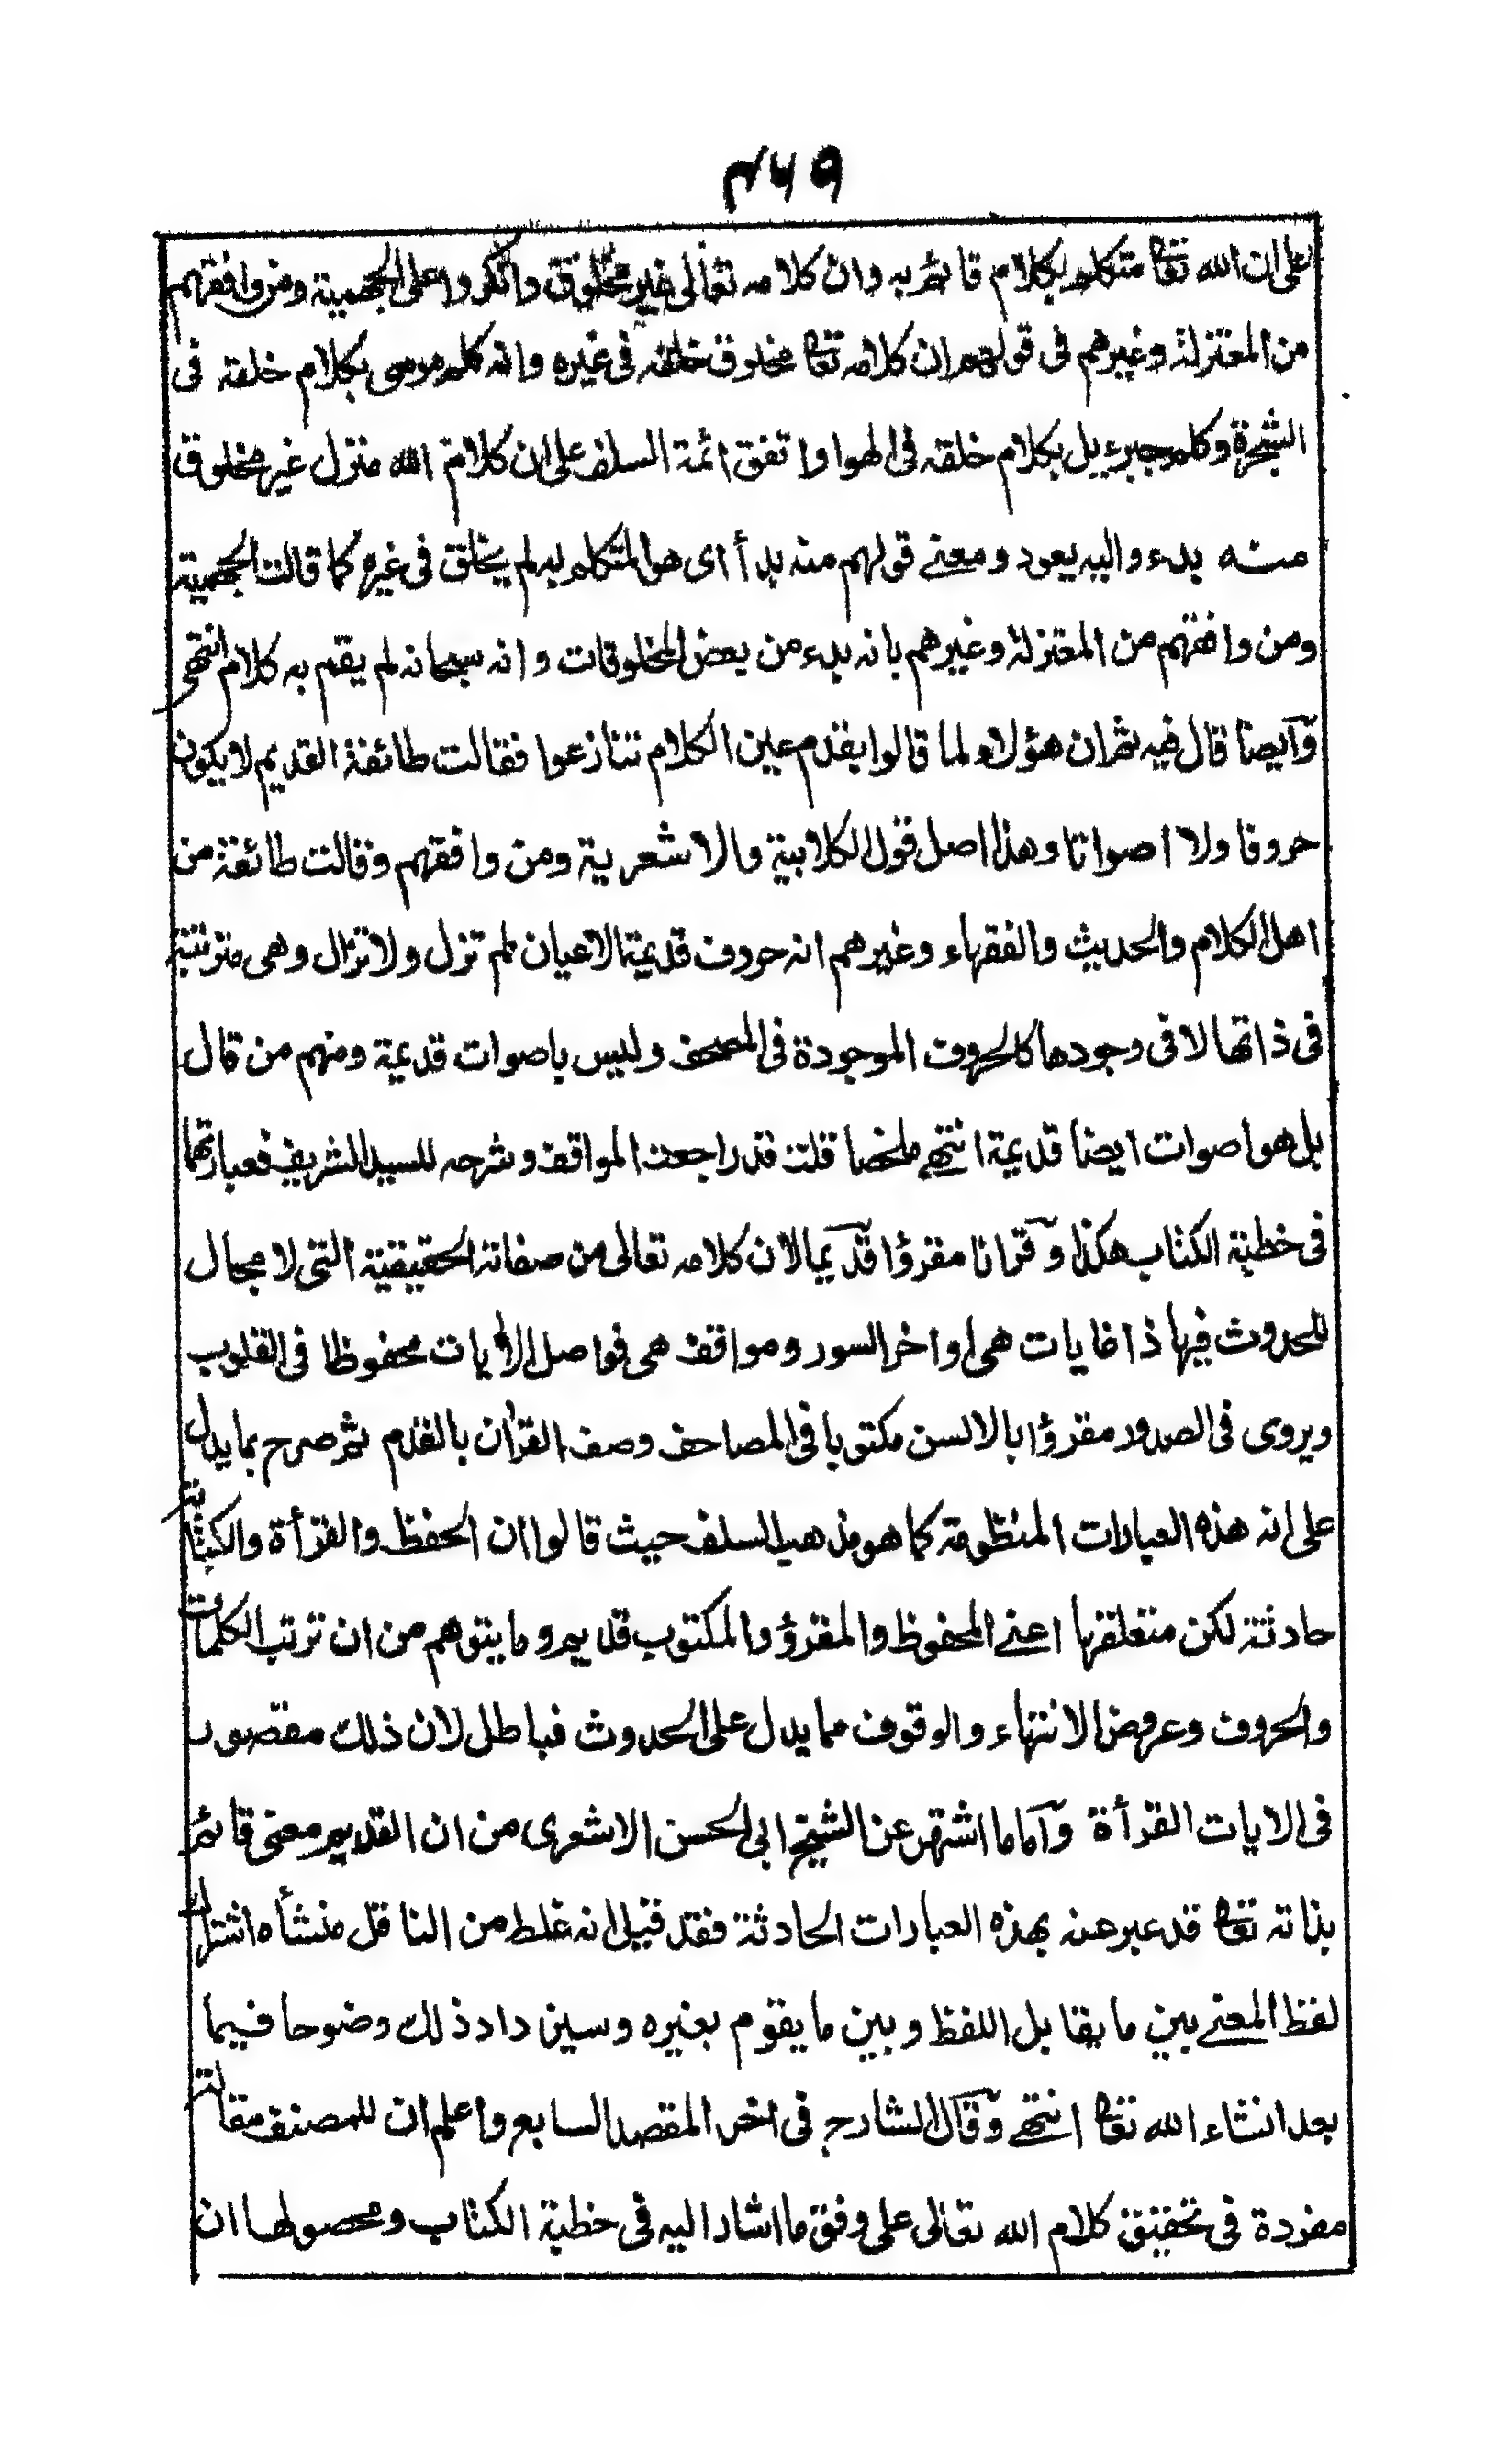 ٤٥٩
على ان الله تعا متكلم بكلام قائم به وان كلامه تعالى غير مخلوق وانكروا على الجهمية ومن وافقهم
من المعتزلة وغيرهم فى قولهم ان كلامه تعا مخلوق خلقه فى غيره وانه كلم موسى بكلام خلقه فى
الشجرة وكلم جبرءيل بكلام خلقه فى الهوا واتفق ائمة السلف على ان كلام الله منزل غير مخلوق
منه بدء واليه يعود ومعنے قولهم منه بدأ اى هو المتكلم به لم يخلق فى غيره كما قالت الجهمية
ومن وافقهم من المعتزلة وغيرهم بانه بدء من بعض المخلوقات وانه سبحانه لم يقم به كلام انتهى
وآيضا قال فيه ثم ان هؤلاء لما قالوا بقدم عين الكلام تنازعوا فقالت طائفة القديم لا يكون
حروفا ولا اصواتا وهذا اصل قول الكلابية والاشعرية ومن وافقهم وقالت طائفة من
اهل الكلام والحديث والفقهاء وغيرهم انه حروف قديمة الاعيان لم تزل ولا تزال وهى مترتبة
فى ذاتها لا فى وجودها كالحروف الموجودة فى المصحف وليس باصوات قديمة ومنهم من قال
بل هو اصوات ايضا قديمة انتهے ملخصا قلت قد راجعت المواقف وشرحه للسيد الشريف فعبارتهما
فى خطبة الكتاب هكذا وقرانا مقرؤا قديما لان كلامه تعالى من صفاته الحقيقية التى لا مجال
للحدوث فيها ذا غايات هى اواخر السور ومواقف هى فواصل الأيات محفوظا فى القلوب
ويروى فى الصدور مقرؤا بالالسن مكتوبا فى المصاحف وصف القرأن بالقدم ثم صرح بما يدل
على انه هذه العبارات المنظومة كما هو مذهب السلف حيث قالوا ان الحفظ والقرأة والكتابة
حادثة لكن متعلقها اعنے المحفوظ والمقرؤ والمكتوب قديم وما يتوهم من ان ترتب الكلمات
والحروف وعروض الانتهاء والوقوف مما يدل على الحدوث فباطل لان ذلك مقصور
فى الايات القرأة وآما ما اشتهر عن الشيخ ابى الحسن الاشعرى من ان القديم معنى قائم
بذاته تعا قد عبر عنه بهذه العبارات الحادثة فقد قيل انه غلط من الناقل منشأه اشتراك
لفظ المعنے بين ما يقابل اللفظ وبين ما يقوم بغيره وسيزداد ذلك وضوحا فيما
بعد انشاء الله تعا انتهے وقال الشارح فى اخر المقصد السابع واعلم ان للمصنف مقالة
مفردة فى تحقيق كلام الله تعالى على وفق ما اشار اليه فى خطبة الكتاب ومحصولها ان